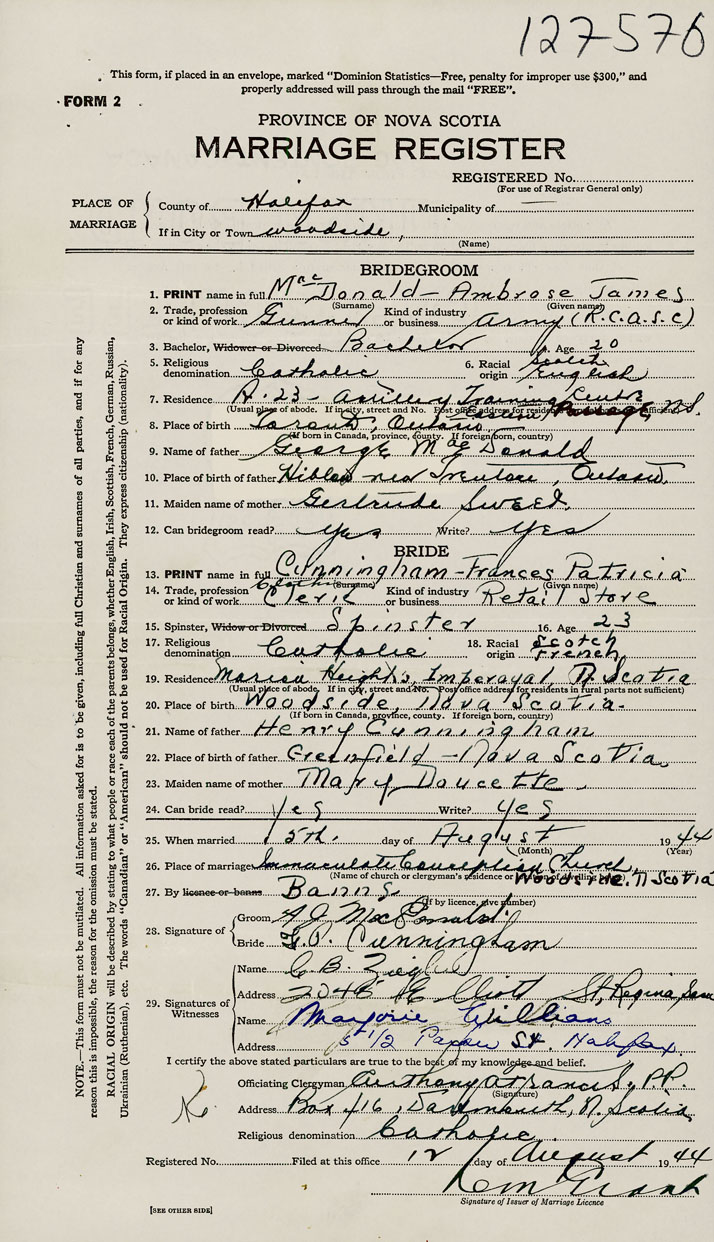 127576
This form, if placed in an envelope, marked "Dominion Statistics—Free, penalty for improper use $300," and
properly addressed will pass through the mail "FREE".
FORM 2
PROVINCE OF NOVA SCOTIA
MARRIAGE REGISTER
REGISTERED No.
(For use of Registrar General only)
PLACE OF MARRIAGE
County of Halifax Municipality of —
If in City or Town woodside,
(Name)
BRIDEGROOM
1. PRINT name in full MacDonald - Ambrose James
(Surname) (Given name)
2. Trade, profession or kind of work Gunner Kind of industry or business Army (R.C.A.S.C)
3. Bachelor, Widower or Divorced Bachelor 4. Age 20
5. Religious denomination Catholic 6. Racial origin Scotch English
7. Residence A-23 - Artillery Training Centre
Eastern Passage N.S.
(Usual place of abode. If in city, street and No. Post office address for residents in rural parts not sufficient)
8. Place of birth Toronto, Ontario
(If born in Canada, province, county. If foreign born, country)
9. Name of father George MacDonald
10. Place of birth of father near Trenton, Ontario.
11. Maiden name of mother Gertrude Sweet.
12. Can bridegroom read? Yes Write? Yes
BRIDE
13. PRINT name in full Cunningham - Frances Patricia
(Surname) (Given name)
14. Trade, profession or kind of work Clerk Kind of industry or business Retail Store
15. Spinster, Widow or Divorced Spinster 16. Age 23
17. Religious denomination Catholic 18. Racial origin Scotch French
19. Residence Heights, Imperoyal, N. Scotia
(Usual place of abode. If in city, street and No. Post office address for residents in rural parts not sufficient)
20. Place of birth Woodside, Nova Scotia.
(If born in Canada, province, county. If foreign born, country)
21. Name of father Henry Cunningham
22. Place of birth of father Greenfield - Nova Scotia.
23. Maiden name of mother Mary Doucette.
24. Can bride read? Yes Write? Yes
25. When married 5th. day of August 1944
(Month) (Year)
26. Place of marriage Immaculate Conception Church,
Woodside. N Scotia
(Name of church or clergyman's residence or
27. By licence or banns Banns.
(If by licence, give number)
28. Signature of
Groom A J MacDonald.
Bride F.P. Cunningham
29. Signatures of Witnesses
Name C B.
Address 2046 St, Regina Sask
Name Marjorie Williams
Address 51 1/2 St. Halifax.
I certify the above stated particulars are true to the best of my knowledge and belief.
Officiating Clergyman Anthony P.P.
(Signature)
Address Box 416, Dartmouth, N. Scotia
Religious denomination Catholic.
Registered No. Filed at this office 12 day of August 1944
Grant
Signature of Issuer of Marriage Licence
[SEE OTHER SIDE]
NOTE.—This form must not be mutilated. All information asked for is to be given, including full Christian and surnames of all parties, and if for any
reason this is impossible, the reason for the omission must be stated.
RACIAL ORIGIN will be described by stating to what people or race each of the parents belongs, whether English, Irish, Scottish, French, German, Russian,
Ukrainian (Ruthenian), etc. The words "Canadian" or "American" should not be used for Racial Origin. They express citizenship (nationality).